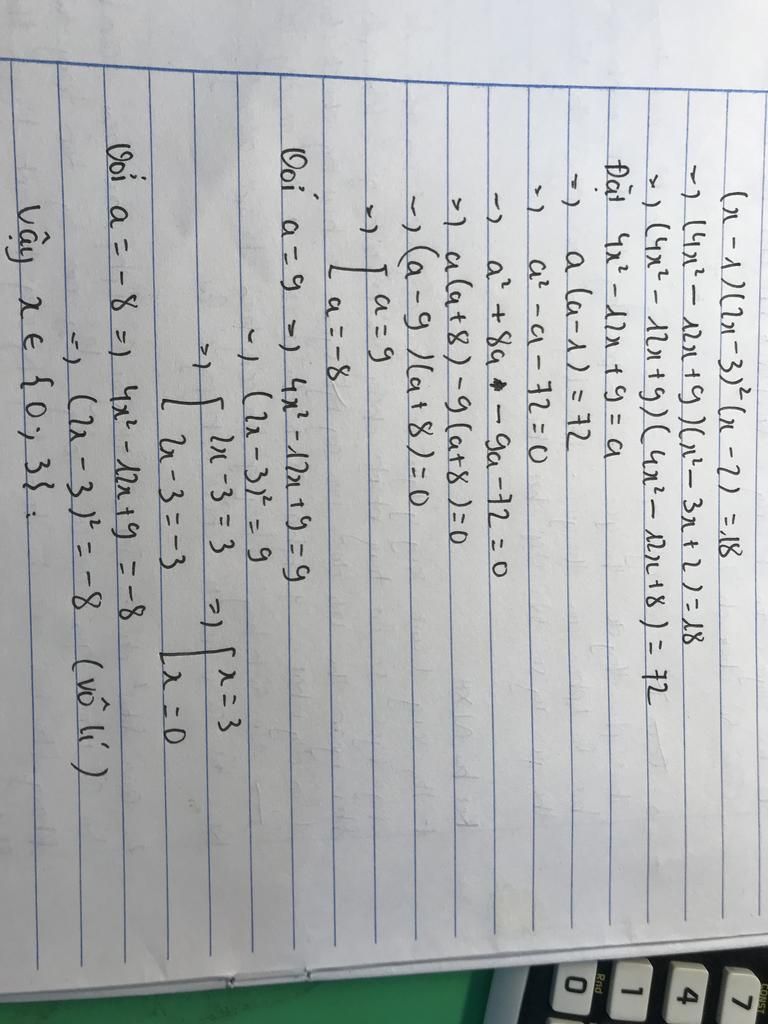 (x-1)(2x-3)²(x-2)=18
=> (4x²-12x+9)(x²-3x+2)=18
=> (4x²-12x+9)(4x²-12x+8)=72
Đặt 4x²-12x+9=a
=> a(a-1)=72
=> a²-a-72=0
=> a²+8a-9a-72=0
=> a(a+8)-9(a+8)=0
=> (a-9)(a+8)=0
=> [ a=9
[ a=-8
Với a=9 => 4x²-12x+9=9
=> (2x-3)²=9
=> [ 2x-3=3 => [ x=3
[ 2x-3=-3 [ x=0
Với a=-8 => 4x²-12x+9=-8
=> (2x-3)²=-8 (vô lí)
Vậy x∈{0;3}.
CONST
7
4
1
Rnd
0